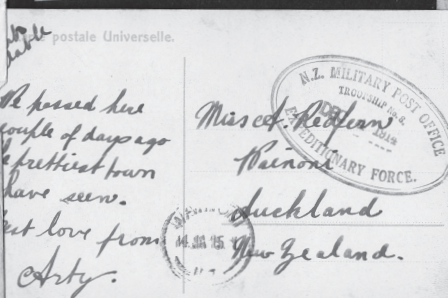 postale Universelle.
We passed here
couple of days ago
prettiest town
have seen.
love from
Arty.
N.Z. MILITARY POST OFFICE
TROOPSHIP No. 8.
DE 1914
EXPEDITIONARY FORCE.
Miss A. Redfern
Auckland
New Zealand.